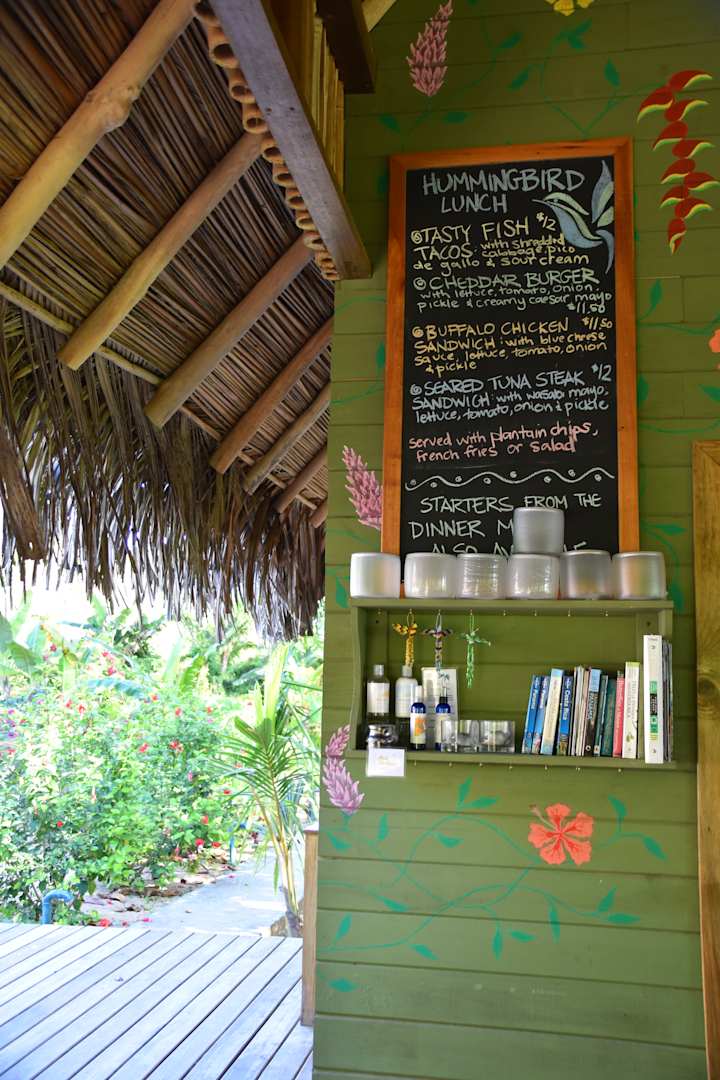 HUMMINGBIRD
LUNCH
TASTY FISH $12
TACOS: with shredded
cabbage, pico
de gallo & sour cream
CHEDDAR BURGER
with lettuce, tomato, onion,
pickle & creamy caesar mayo
$11.50
BUFFALO CHICKEN $11.50
SANDWICH: with blue cheese
sauce, lettuce, tomato, onion
& pickle
SEARED TUNA STEAK $12
SANDWICH: with wasabi mayo,
lettuce, tomato, onion & pickle
served with plantain chips,
french fries or salad
STARTERS FROM THE
DINNER M
ALSO
Costa Rica